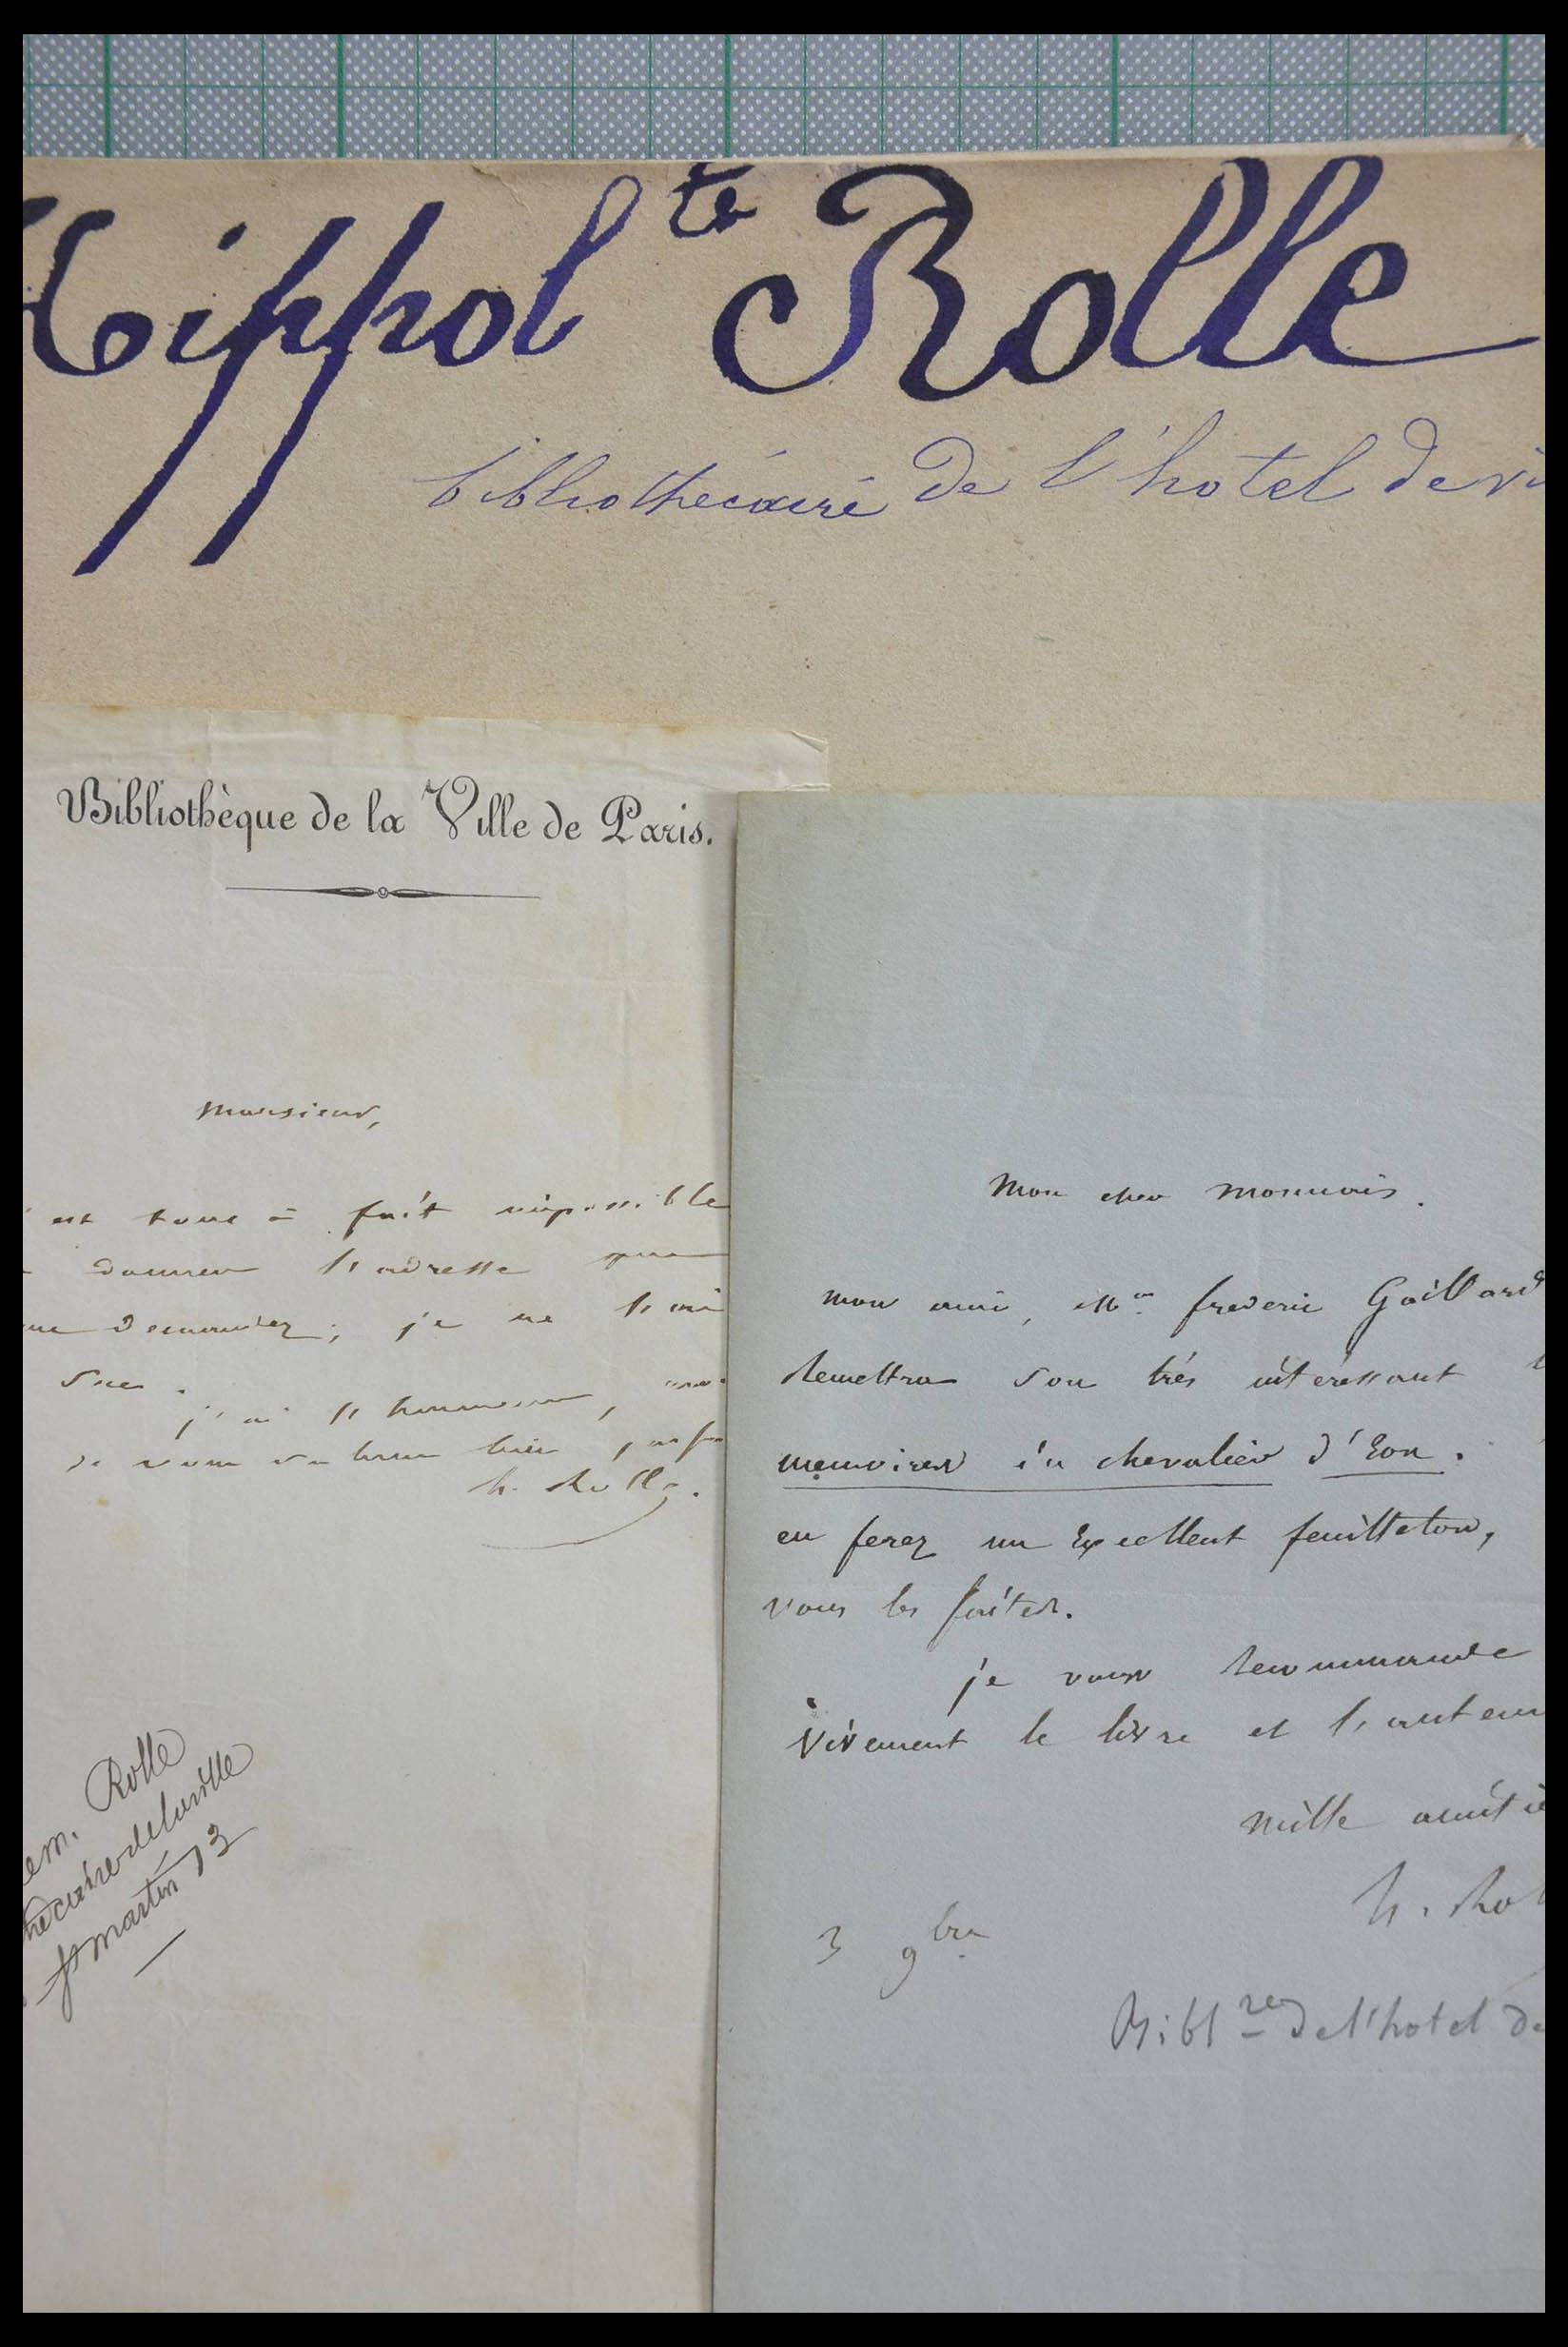 Hippol te Rolle
bibliothécaire de l'hotel de vi
Bibliothèque de la Ville de Paris.
Monsieur,
est tout à fait impossible
donner l'adresse que
me demandez; je ne l'ai
sue.
j'ai l'honneur,
de vous saluer bien
h. Rolle.
em. Rolle
thécaire de la ville
st martin 13
Mon cher monnais.
mon ami, Mr frederic Gaillard
remettra son très intéressant
memoires du chevalier d'Eon.
en ferez un Excellent feuilleton,
vous les faites.
je vous recommande
vivement le livre et l'auteur
mille amitié
h. Rol
3 9bre
Biblre de l'hotel de